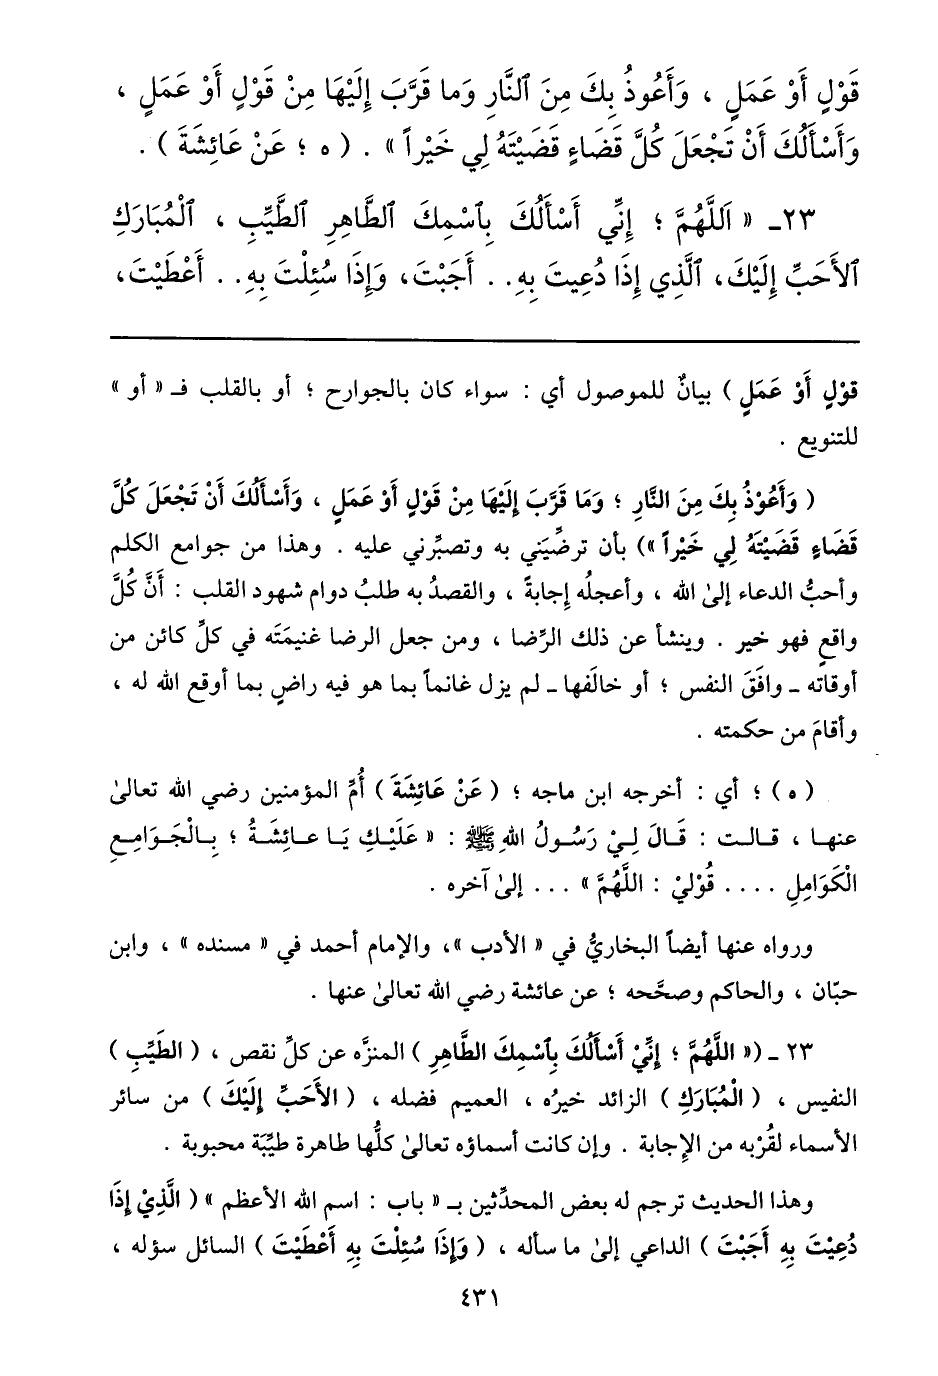 قَوْلٍ أَوْ عَمَلٍ ، وَأَعُوذُ بِكَ مِنَ ٱلنَّارِ وَما قَرَّبَ إِلَيْهَا مِنْ قَوْلٍ أَوْ عَمَلٍ ،
وَأَسْأَلُكَ أَنْ تَجْعَلَ كُلَّ قَضَاءٍ قَضَيْتَهُ لِي خَيْراً » . ( ه ؛ عَنْ عَائِشَةَ ) .
٢٣ـ « اَللَّهُمَّ ؛ إِنِّي أَسْأَلُكَ بِٱسْمِكَ ٱلطَّاهِرِ ٱلطَّيِّبِ ، ٱلْمُبَارَكِ
ٱلأَحَبِّ إِلَيْكَ، ٱلَّذِي إِذَا دُعِيتَ بِهِ. . أَجَبْتَ، وَإِذَا سُئِلْتَ بِهِ. . أَعْطَيْتَ،
قَوْلٍ أَوْ عَمَلٍ ) بيانٌ للموصول أي : سواء كان بالجوارح ؛ أو بالقلب فـ « أو »
للتنويع .
( وَأَعُوْذُ بِكَ مِنَ النَّارِ ؛ وَمَا قَرَّبَ إِلَيْهَا مِنْ قَوْلٍ أَوْ عَمَلٍ ، وَأَسْأَلُكَ أَنْ تَجْعَلَ كُلَّ
قَضَاءٍ قَضَيْتَهُ لِي خَيْراً ») بأن ترضِّيَني به وتصبِّرني عليه . وهذا من جوامع الكلم
وأحبُّ الدعاء إلىٰ الله ، وأعجلُه إجابةً ، والقصدُ به طلبُ دوام شهود القلب : أَنَّ كُلَّ
واقعٍ فهو خير . وينشأ عن ذلك الرِّضا ، ومن جعل الرضا غنيمَتَه في كلِّ كائن من
أوقاته ـ وافَقَ النفس ؛ أو خالَفها ـ لم يزل غانماً بما هو فيه راضٍ بما أوقع الله له ،
وأقامَ من حكمته .
( ه ) ؛ أي : أخرجه ابن ماجه ؛ ( عَنْ عَائِشَةَ ) أُمِّ المؤمنين رضي الله تعالىٰ
عنها ، قـالـت : قَـالَ لِـيْ رَسُـولُ اللهِ ﷺ : « عَلَيْـكِ يَـا عـائِشَـةُ ؛ بِـالْجَـوَامِـعِ
الْكَوَامِلِ .... قُوْليْ : اللَّهُمَّ » ... إلىٰ آخره .
ورواه عنها أيضاً البخاريُّ في « الأدب »، والإمام أحمد في « مسنده » ، وابن
حبّان ، والحاكم وصحَّحه ؛ عن عائشة رضي الله تعالىٰ عنها .
٢٣ ـ (« اللَّهُمَّ ؛ إِنِّيْ أَسْأَلُكَ بِٱسْمِكَ الطَّاهِرِ ) المنزَّه عن كلِّ نقص ، ( الطَيِّبِ )
النفيس ، ( الْمُبَارَكِ ) الزائد خيرُه ، العميم فضله ، ( الأَحَبِّ إِلَيْكَ ) من سائر
الأسماء لقُرْبه من الإجابة . وإن كانت أسماؤه تعالىٰ كلُّها طاهرة طيِّبَة محبوبة .
وهذا الحديث ترجم له بعض المحدِّثين بـ « باب : اسم الله الأعظم » ( الَّذِيْ إِذَا
دُعِيْتَ بِهِ أَجَبْتَ ) الداعي إلىٰ ما سأله ، ( وَإِذَا سُئِلْتَ بِهِ أَعْطَيْتَ ) السائل سؤله ،
٤٣١